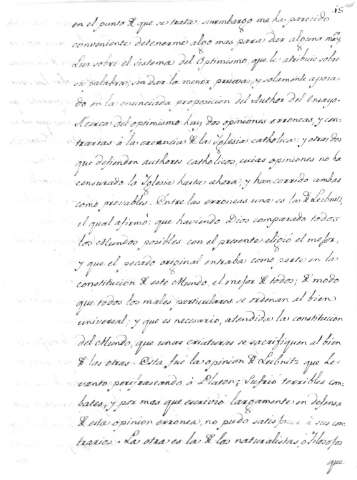 15
en el punto de que se trata: sinembargo me ha parecido
conveniente detenerme algo mas para dar alguna mas
luz sobre el sistema del Optimismo, que le atribuie sobre
su palabra, sin dar la menor prueba, y solamente apoia-
do en la enunciada proposicion del Author del Ensayo.
Acerca del optimismo hay dos opiniones erroneas, y con-
trarias à la creencia de la Yglesia catholica: y otras dos
que defienden authores catholicos, cuias opiniones no ha
censurado la Yglesia hasta ahora; y han corrido ambas
como probables. Entre las erroneas una es la de Leibnitz,
el qual afirmò: que haviendo Dios comparado todos
los Mundos posibles con el presente eligió el mejor,
y que el pecado original entraba como parte en la
constitucion de este Mundo, el mejor de todos; de modo
que todos los males particulares se ordenan al bien
universal, y que es necesario, atendida la constitucion
del Mundo, que unas criaturas se sacrifiquen al bien
de las otras. Esta fuè la opinion de Leibnitz que le-
vanto, perifraseando à Platon; sufrio terribles com-
bates, y por mas que escrivió largamente en defensa
de esta opinion erronea, no pudo satisfa à sus con-
trarios. La otra es la de los naturalistas, ò filosofos
que